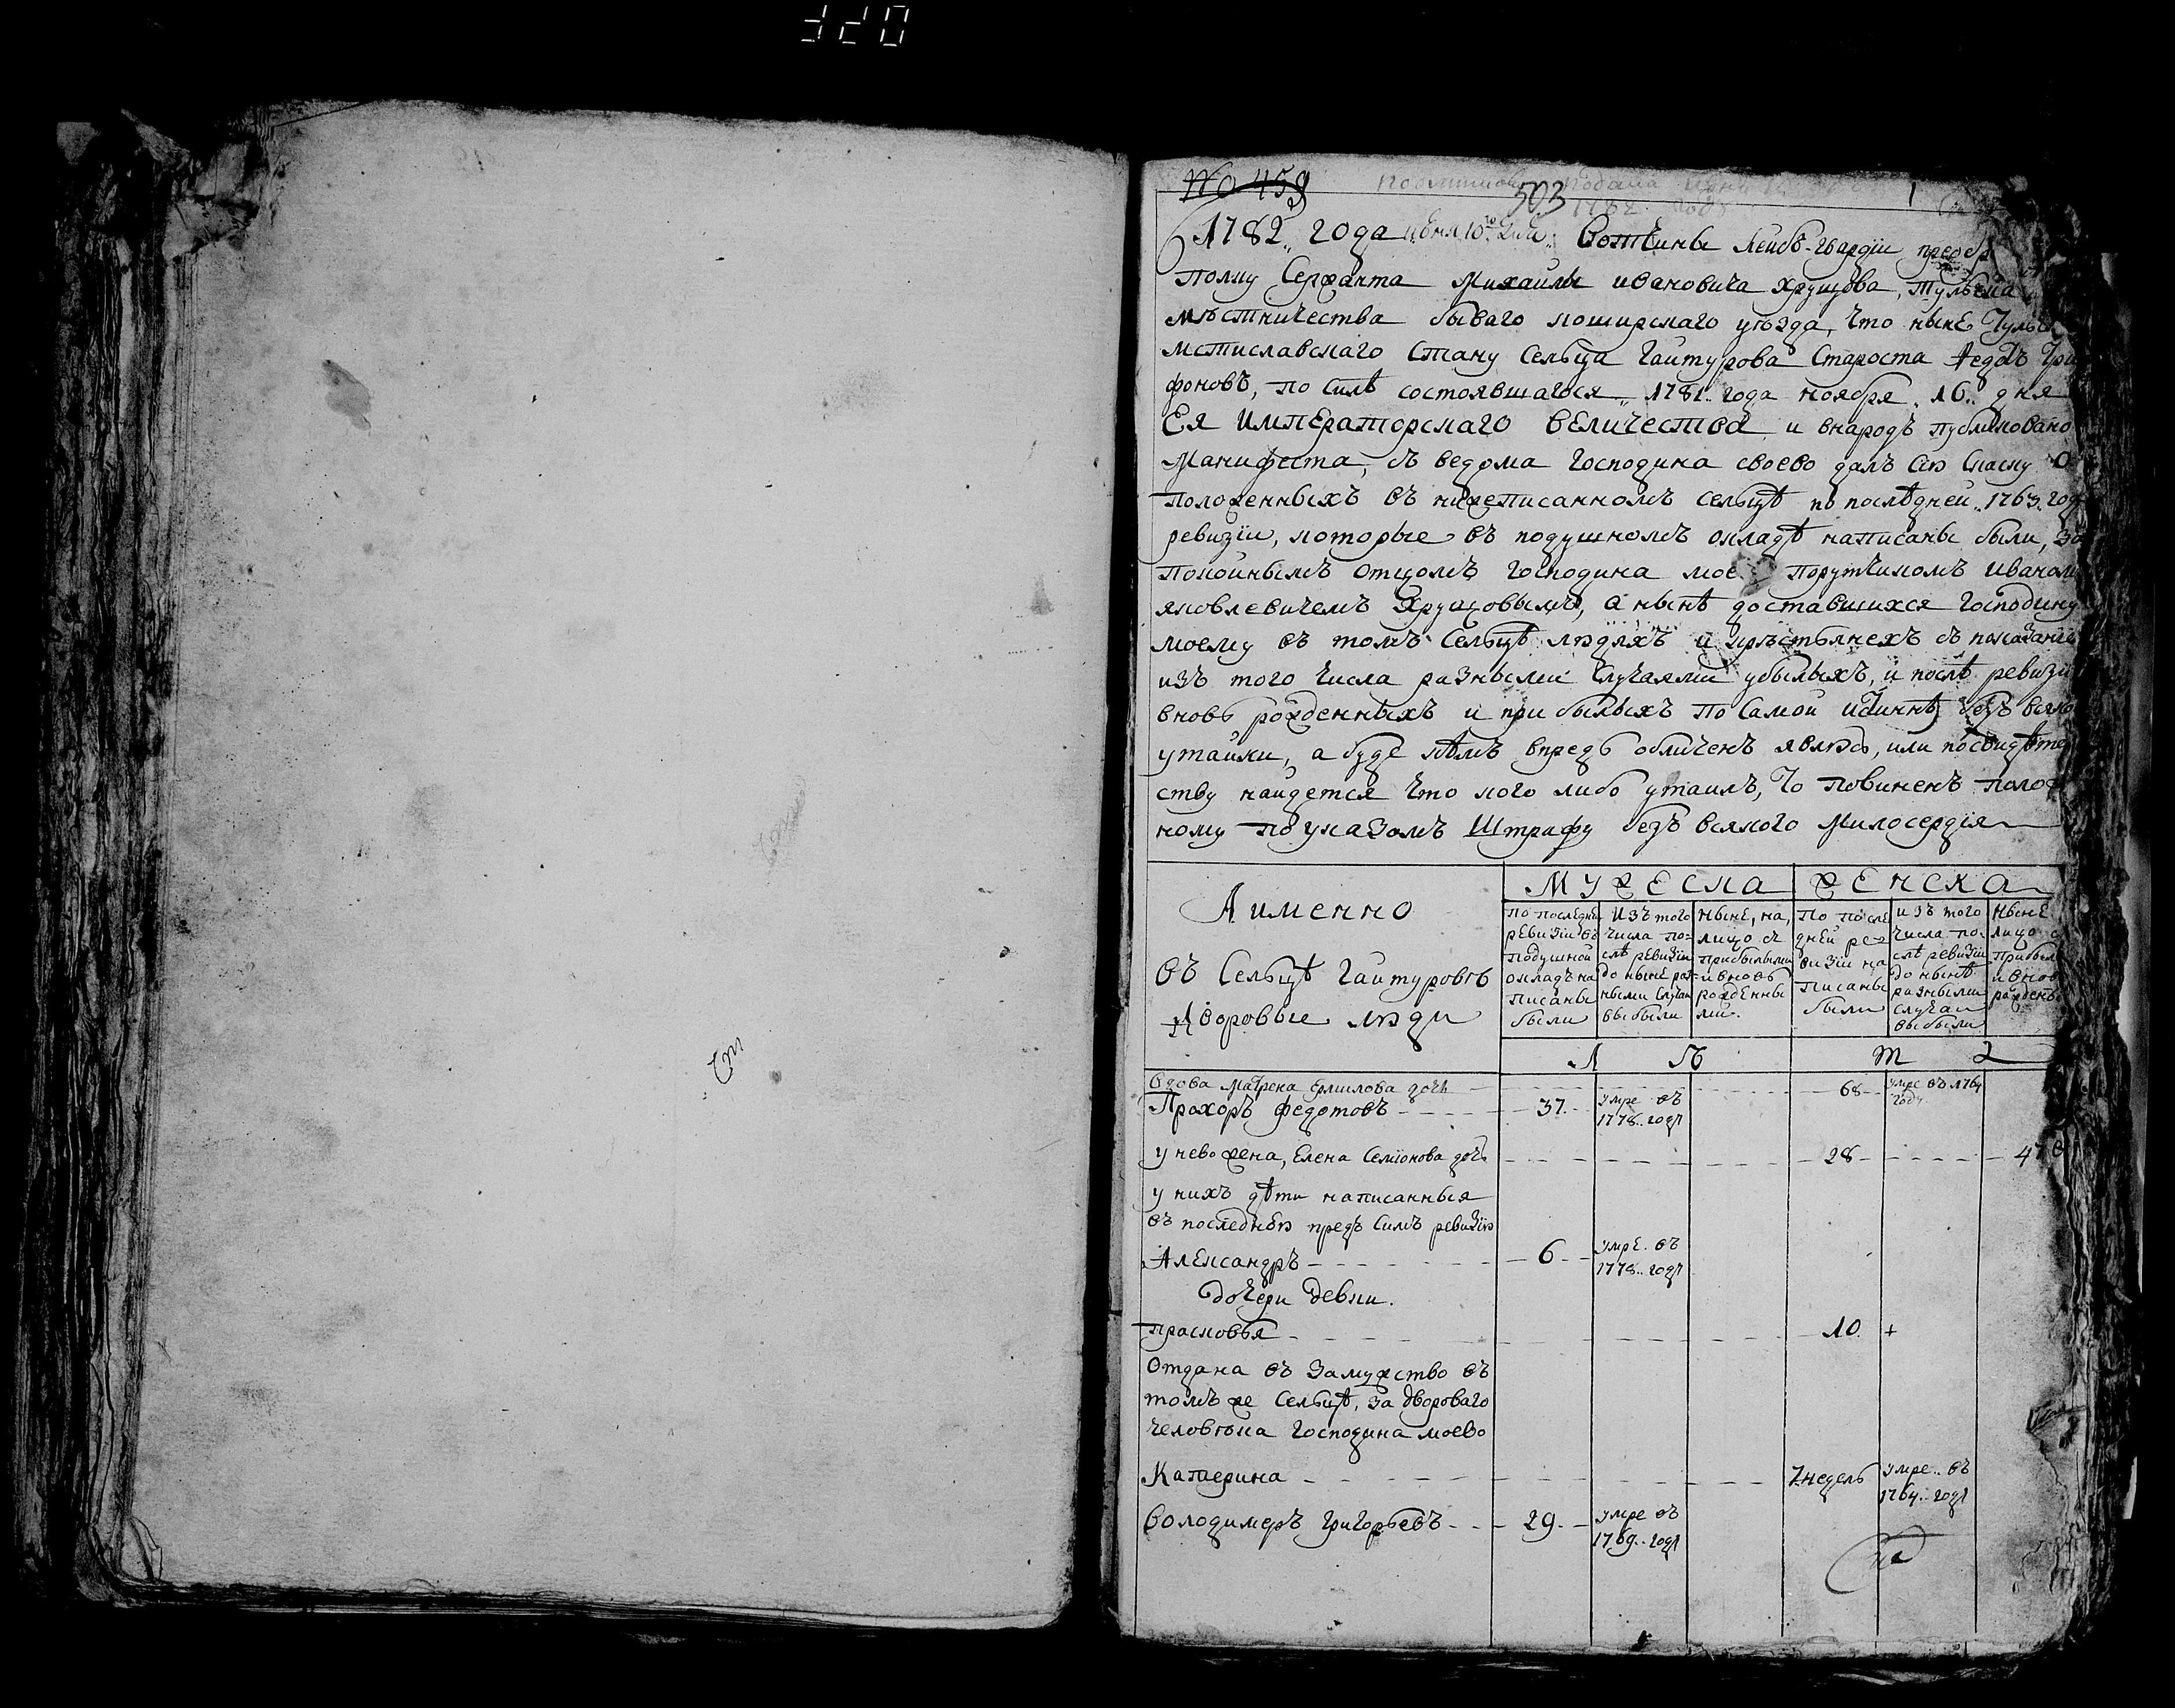 № 459
503
подана
1782 году
1
1782 года июня 10го дня Вотчины Лейбъ-гвардїи преобр
полку Сержанта Михаилы ивановича хрущова, Тульска
мѣстничества бываго коширскаго уѣзда, что нынѣ Тульск
мстиславскаго Стану Сельца Гаитурова Староста Ѳедотъ Три
фоновъ, по силѣ состоявшагося 1781 года ноября 16 дня
Ея императорскаго величества и внародъ публиковано
Манифеста, съ ведома Господина своево далъ Сїю Скаску О
положенныхъ въ нижеписанномъ сельцѣ по послѣдней 1763 год
ревизїи, которые въ подушномъ окладѣ написаны были, за
покойнымъ отцомъ господина мое порутчикомъ иваном
яковлевичемъ Хрущовымъ, а нынѣ доставшихся господину
моему въ томъ Сельцѣ людяхъ и крестьянехъ съ показанїе
изъ того числа разными случаями убылыхъ, и послѣ ревизїи
вновь рожденныхъ и прибылыхъ по самой истиннѣ безъ всяко
утайки, а буде кѣмъ впредь обличенъ явлюсь, или посвидѣте
ству найдется что кого либо утаилъ, то повиненъ полож
ному по указамъ Штрафу безъ всякого милосердїя
Аименно
въ Сельцѣ Гаитуровѣ
Дворовые люди
Мужеска
женска
по последней ревизїи въ подушной окладъ написаны были
изъ того числа послѣ ревизїи до ныне разными случаи выбыли
ныне, на лицо съ прибылыми и вновь рожденными.
По последней ревизїи написаны были
изъ того числа послѣ ревизїи до нынѣ разными случаи выбыли
Ныне лицо с прибыл и внов рожденн
Л Ѣ Т А
Вдова матрена Ермилова дочь 68 умре въ 1764 году
Прохоръ федотовъ 37 умре въ 1778 году
у нево жена, Елена Семїонова дочь 28 47
у нихъ дѣти написанныя
въ последнюю предъ симъ ревизїю
Александръ 6 умре въ 1778 году
дочери девки.
прасковья 10 +
отдана въ замужство въ
томъ же сельцѣ, за двороваго
человѣка господина моево
Катерина 7 недель умре въ 1764 году
володимеръ григорьевъ 29 умре въ 1769 году